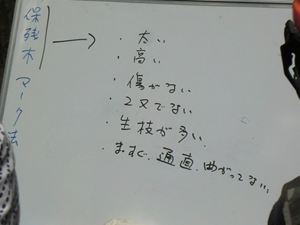 保残木マーク法
・太い
・高い
・傷がない
・2又でない
・生枝が多い
・まっすぐ、通直、曲がってない、